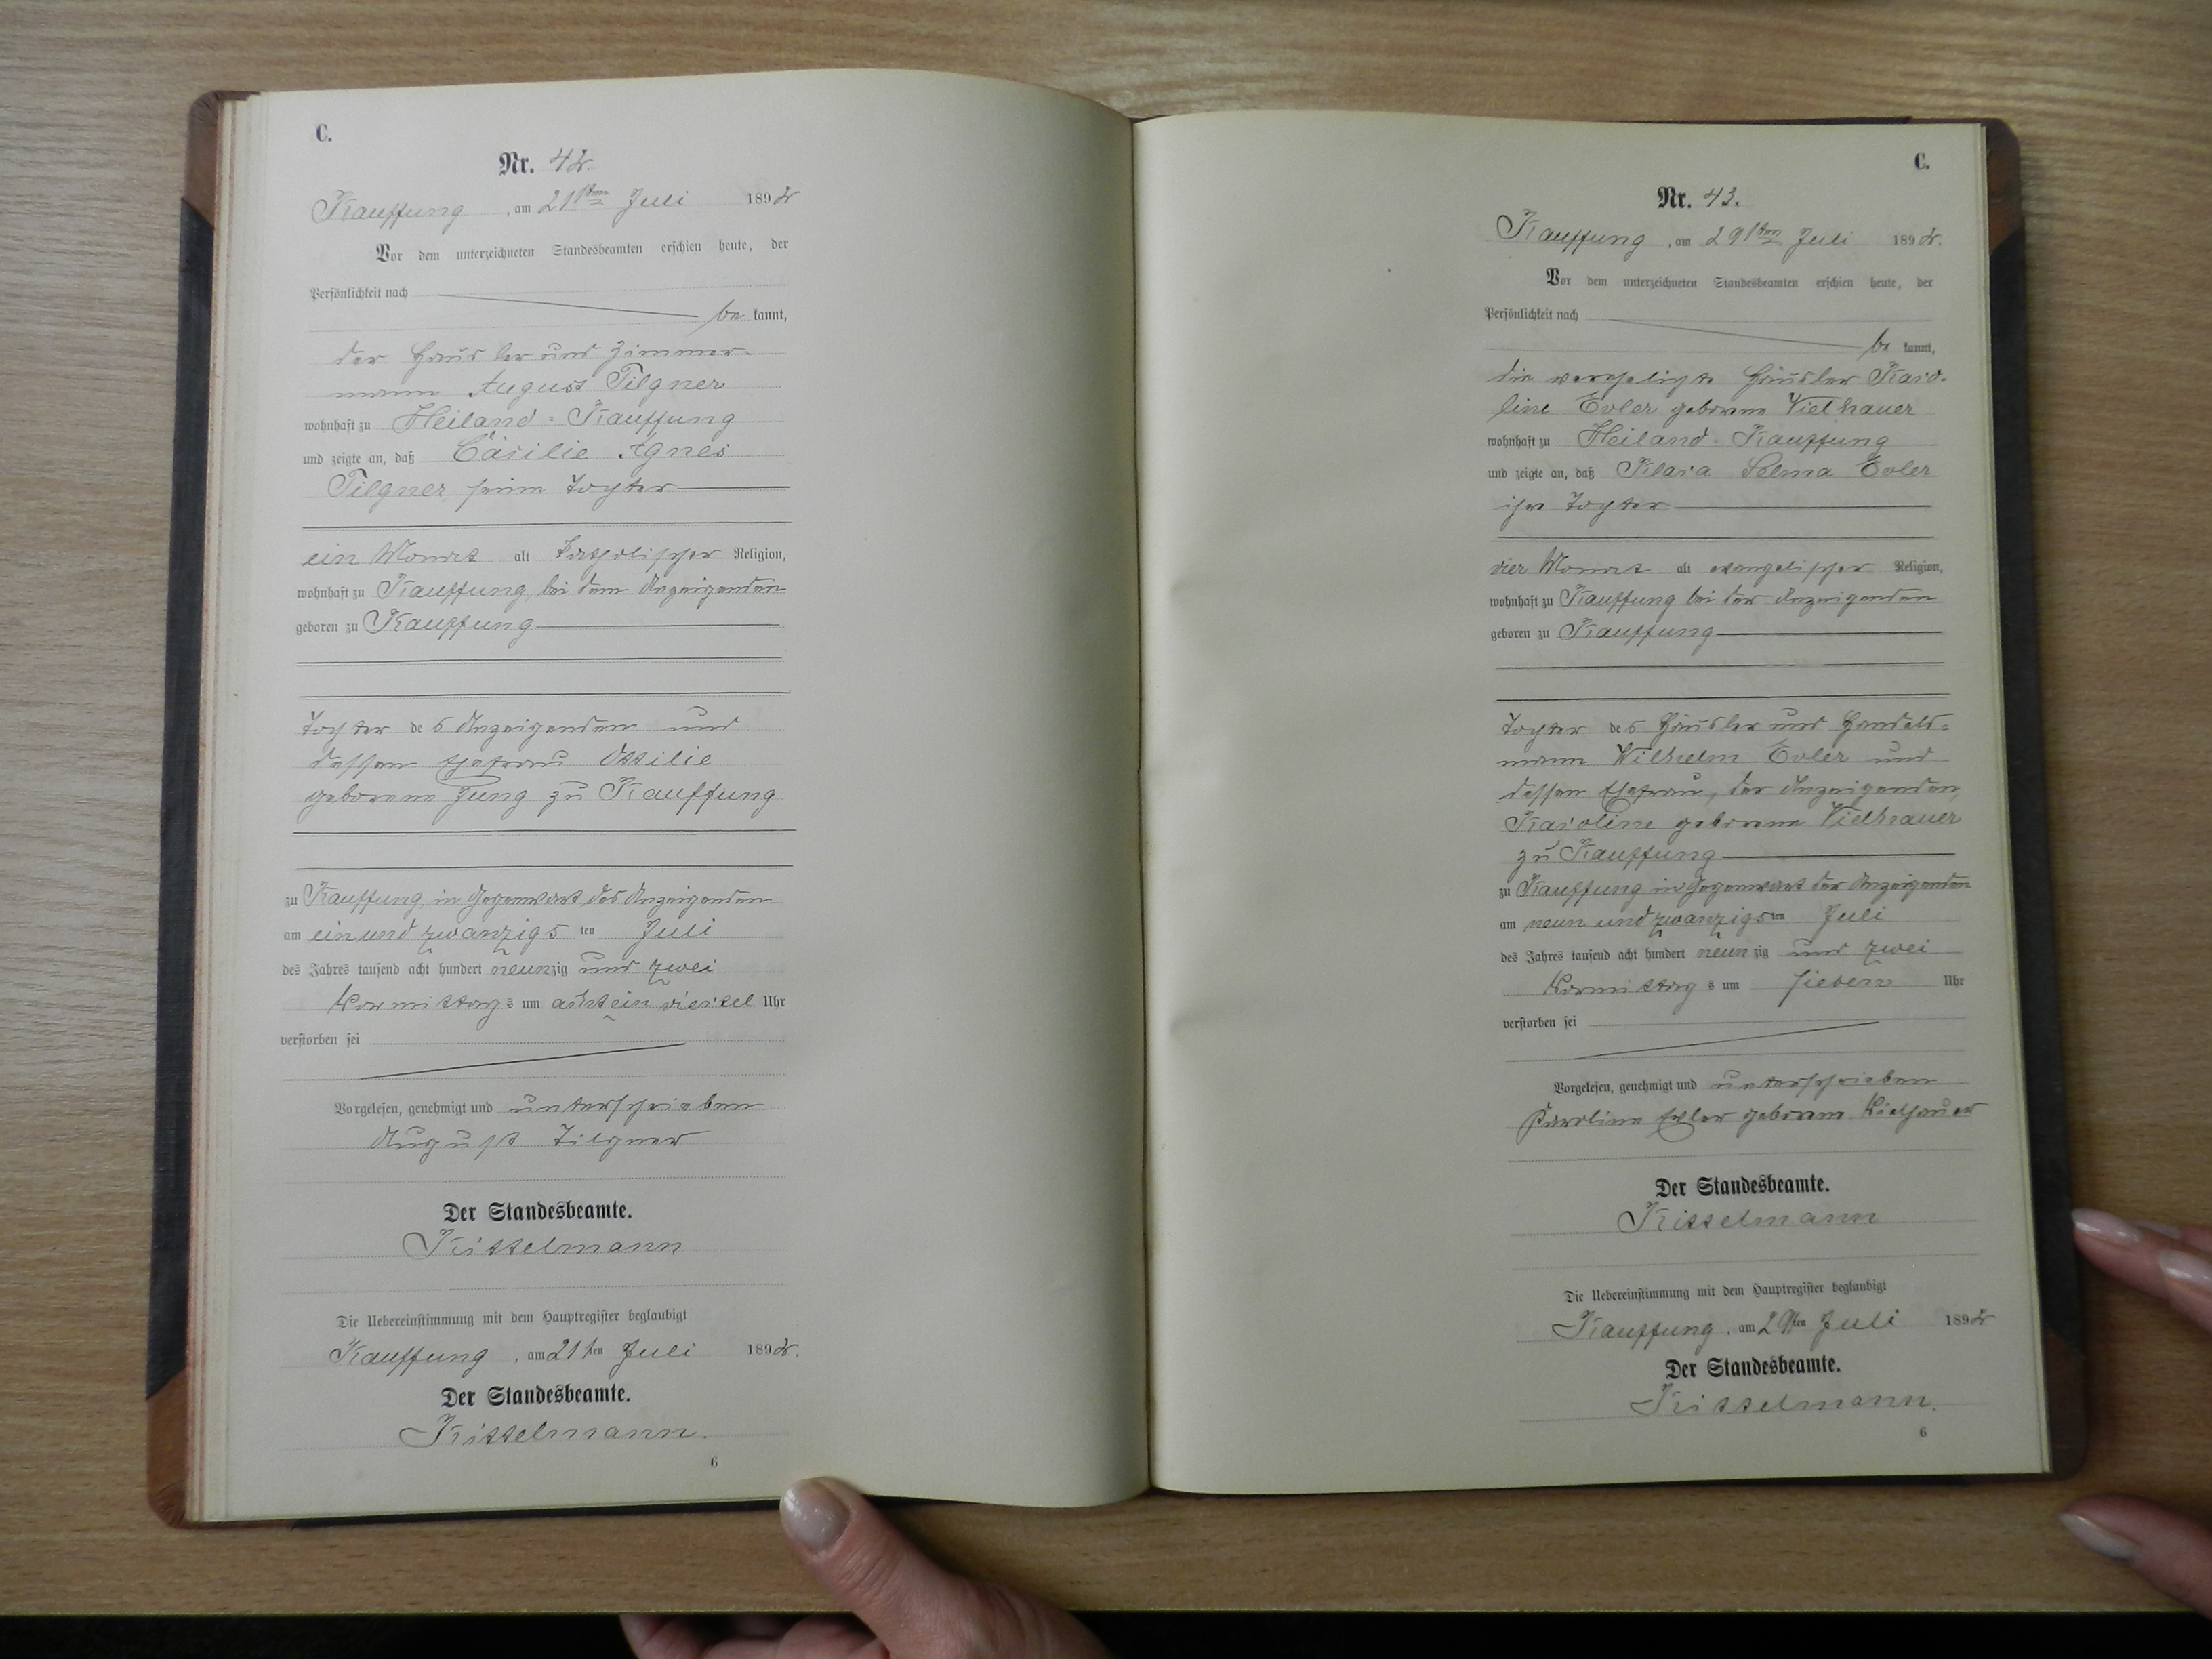 C.
Nr. 42.
Kauffung, am 21ten Juli 1892
Vor dem unterzeichneten Standesbeamten erschien heute, der
Persönlichkeit nach
be kannt,
der Häusler und Zimmer-
mann August Tilgner
wohnhaft zu Heiland-Kauffung
und zeigte an, daß Cäcilie Agnes
Tilgner, seine Tochter
ein Monat alt katholischer Religion,
wohnhaft zu Kauffung, bei dem Anzeigenden
geboren zu Kauffung
Tochter des Anzeigenden und
dessen Ehefrau Ottilie
geborene Jung zu Kauffung
zu Kauffung, in Gegenwart des Anzeigenden
am ein und zwanzigsten Juli
des Jahres tausend acht hundert neunzig und zwei
Vormittags um acht ein viertel Uhr
verstorben sei
Vorgelesen, genehmigt und unterschrieben
August Tilgner
Der Standesbeamte.
Kittelmann
Die Uebereinstimmung mit dem Hauptregister beglaubigt
Kauffung, am 21ten Juli 1892.
Der Standesbeamte.
Kittelmann.
6
C.
Nr. 43.
Kauffung, am 29ten Juli 1892.
Vor dem unterzeichneten Standesbeamten erschien heute, der
Persönlichkeit nach
be kannt,
die verehelichte Häusler Karo-
line Evler geborene Vielhauer
wohnhaft zu Heiland-Kauffung
und zeigte an, daß Klara Selma Evler
ihre Tochter
vier Monat alt evangelischer Religion,
wohnhaft zu Kauffung bei der Anzeigenden
geboren zu Kauffung
Tochter des Häusler und Handels-
mann Wilhelm Evler und
dessen Ehefrau, der Anzeigenden,
Karoline geborene Vielhauer
zu Kauffung
zu Kauffung in Gegenwart der Anzeigenden
am neun und zwanzigsten Juli
des Jahres tausend acht hundert neunzig und zwei
Vormittags um sieben Uhr
verstorben sei
Vorgelesen, genehmigt und unterschrieben
Karoline Evler geborene Vielhauer
Der Standesbeamte.
Kittelmann
Die Uebereinstimmung mit dem Hauptregister beglaubigt
Kauffung, am 29ten Juli 1892
Der Standesbeamte.
Kittelmann.
6